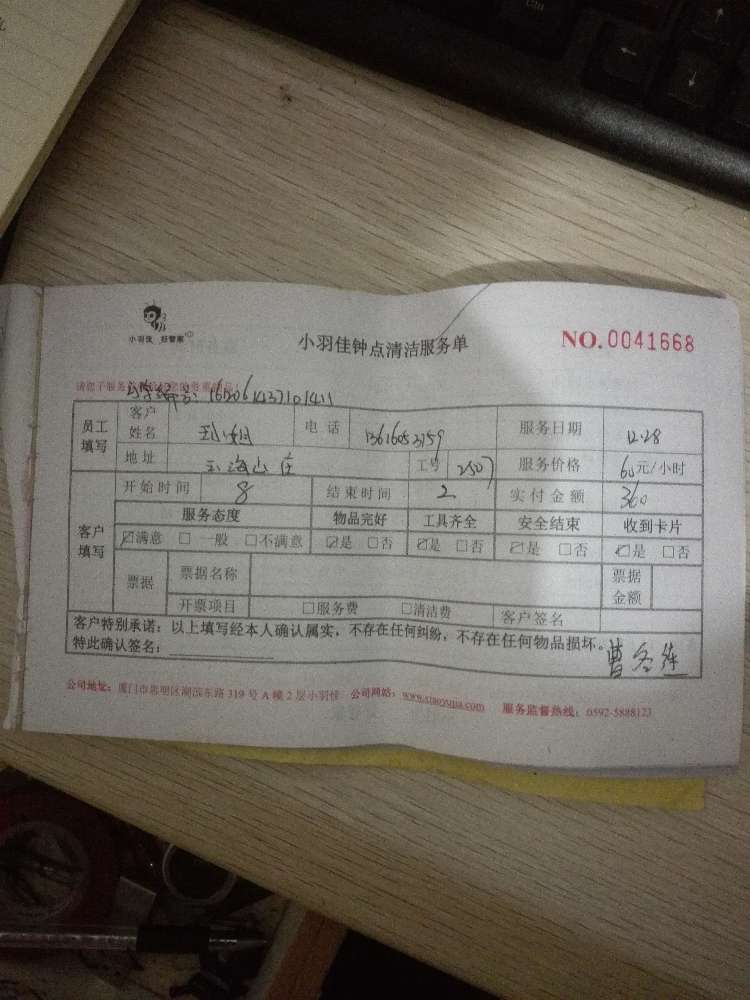 小羽佳 好管家
小羽佳钟点清洁服务单
NO.0041668
1612061437101411
员工填写 客户姓名 电话 13616053759 服务日期 12.28
地址 海山庄 工号 2507 服务价格 60元/小时
开始时间 8 结束时间 2 实付金额 360
客户填写 服务态度 物品完好 工具齐全 安全结束 收到卡片
☑满意 □一般 □不满意 ☑是 □否 ☑是 □否 ☑是 □否 ☑是 □否
票据 票据名称 票据金额
开票项目 □服务费 □清洁费 客户签名
客户特别承诺:以上填写经本人确认属实,不存在任何纠纷,不存在任何物品损坏。
特此确认签名:
公司地址:厦门市思明区湖滨东路 319 号 A 幢 2 层小羽佳 公司网站:www.xiaoyujia.com 服务监督热线:0592-5888123